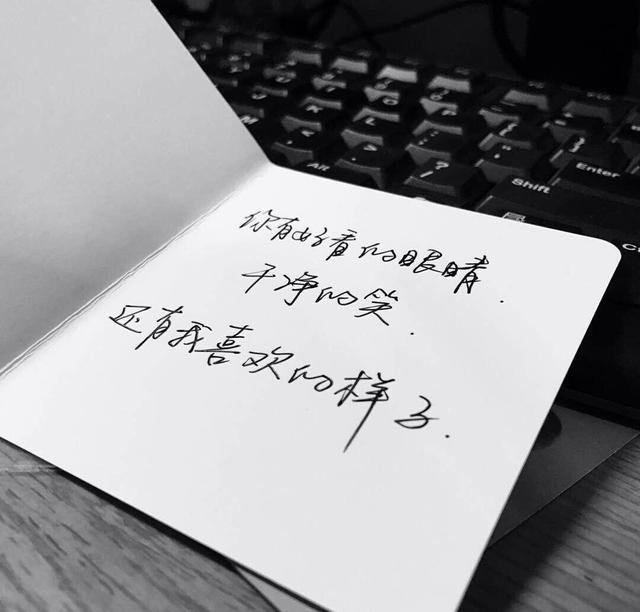 Alt
?
Shift
Enter
你有好看的眼睛.
干净的笑.
还有我喜欢的样子.